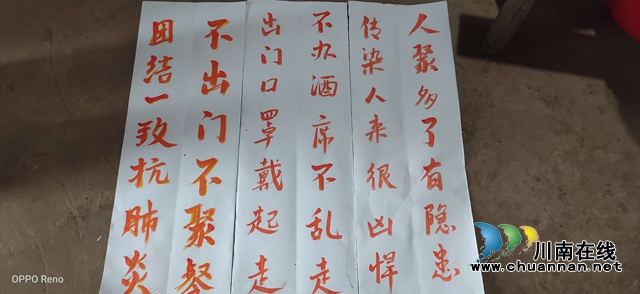 人聚多了有隐患
传染人来很凶悍
不办酒席不乱走
出门口罩戴起走
不出门不聚餐
团结一致抗肺炎
川南在线
www.chuannan.net
OPPO Reno